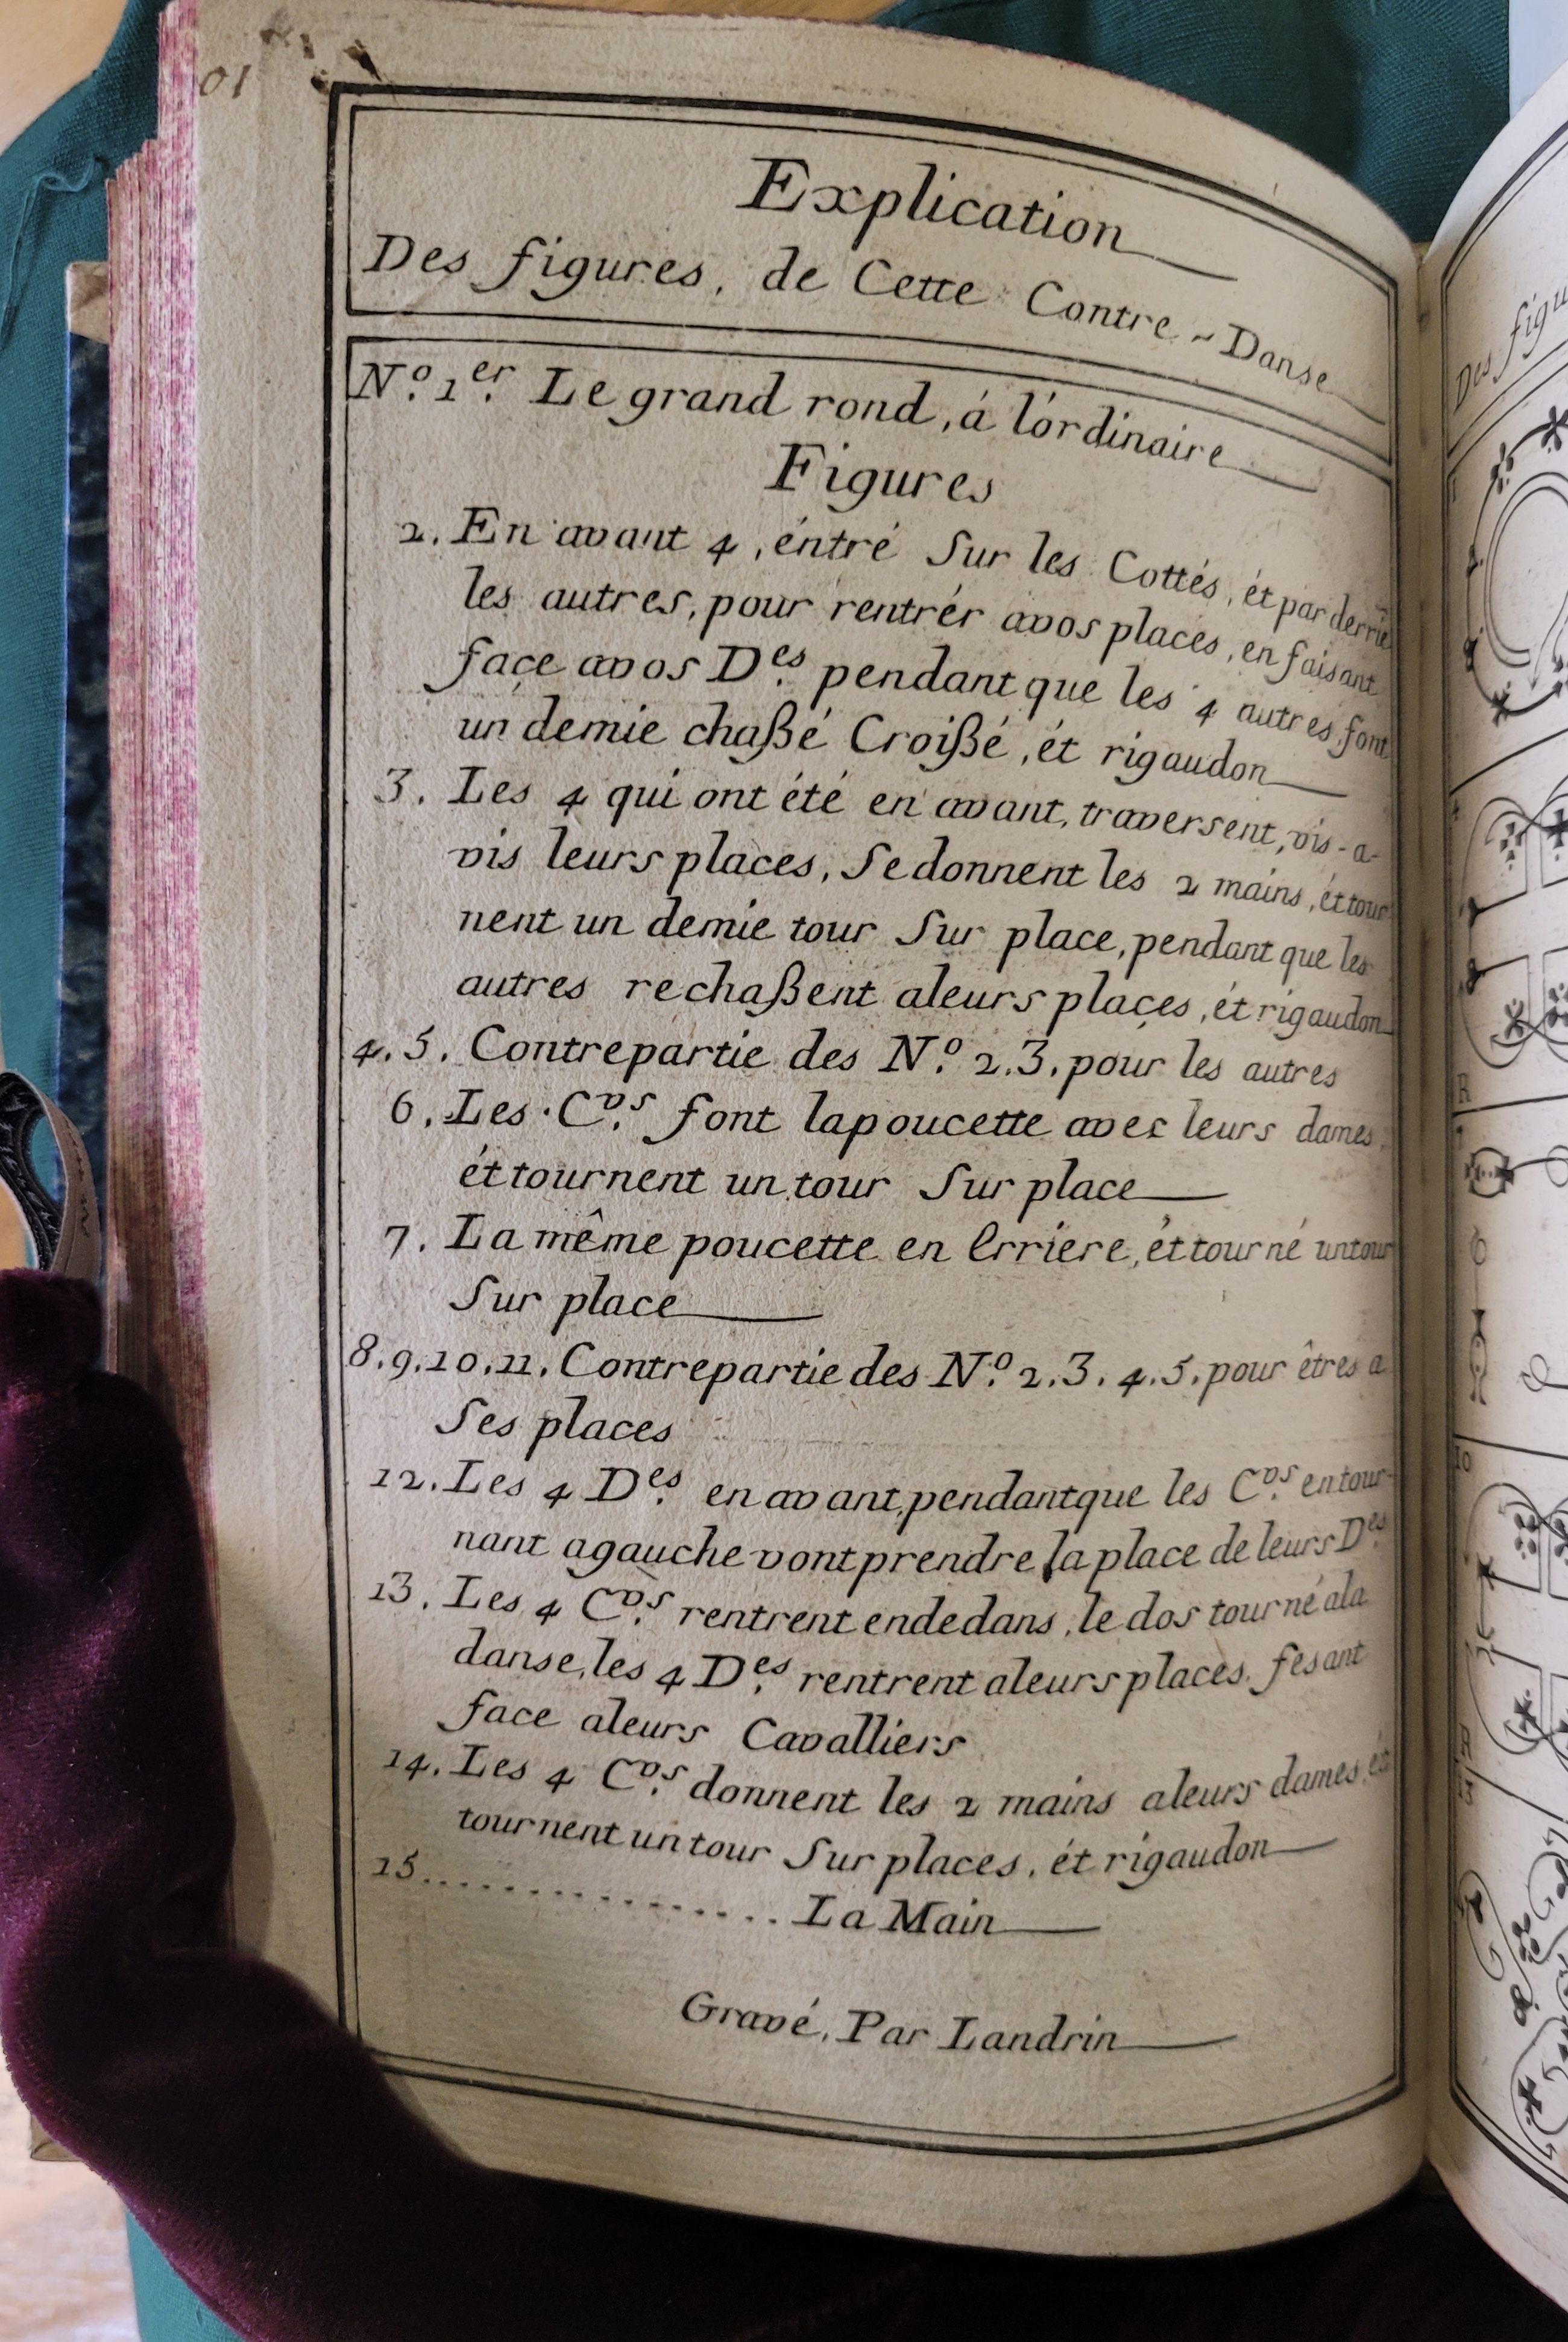 10
Explication
Des figures, de Cette Contre-Danse
N.º 1.er Le grand rond, á l'ordinaire
Figures
2. En avant 4, éntré Sur les Cottés, ét par derrie
les autres, pour rentrér avos places, en faisant
façe avos D.es pendant que les 4 autres font
un demie chaßé Croißé, ét rigaudon
3. Les 4 qui ont été en avant, traversent, vis-a-
vis leurs places, Se donnent les 2 mains, ét tour
nent un demie tour Sur place, pendant que les
autres rechaßent aleurs plaçes, ét rigaudon
4. 5. Contrepartie des N.º 2. 3. pour les autres
6. Les C.vs font lapoucette avec leurs dames
ét tournent un tour Sur place
7. La même poucette en Erriere, ét tourné un tour
Sur place
8. 9. 10. 11. Contrepartie des N.º 2. 3. 4. 5. pour êtres a
Ses places
12. Les 4 D.es en avant, pendant que les C.vs en tour-
nant agauche vont prendre la place de leurs D.es
13. Les 4 C.vs rentrent endedans, le dos tourné ala
danse, les 4 D.es rentrent aleurs places. fesant
face aleurs Cavalliers
14. Les 4 C.vs donnent les 2 mains aleurs dames, ét
tournent un tour Sur places, ét rigaudon
15................ La Main
Gravé, Par Landrin
Des figu